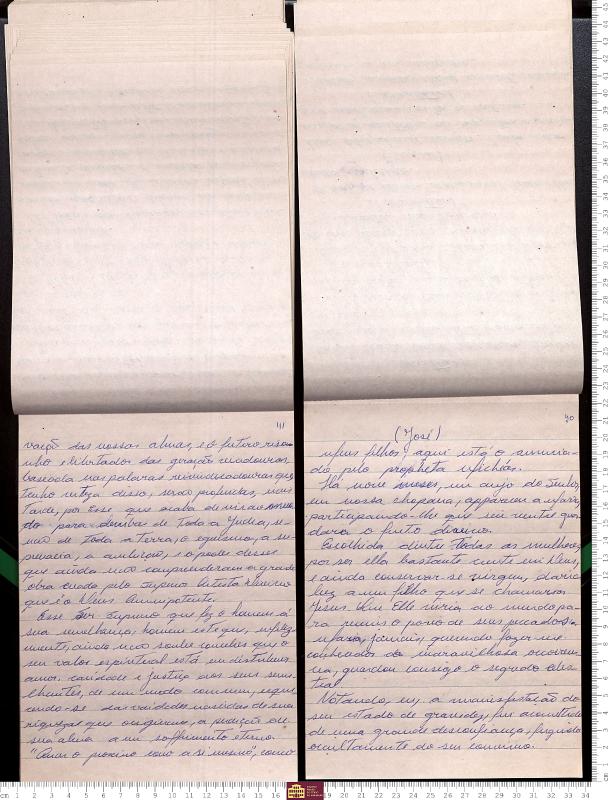 41
vação das nossas almas, e o futuro riso-
nho e libertador das geração vindouras,
baseada nas palavras
tenho certeza disso, serão proferidas, mais
tarde, por Esse que acaba de vir ao mun-
do para o de toda a Judea, e
de toda a terra, o egoismo, a
a ambição, e o poder desses
que ainda não comprehenderam a grande
obra creada pelo Supremo
que é o Deus Omnipotente.
Esse Ser Supremo que fez o homem á
sua semelhança, homem este que, infeliz-
mente, ainda não soube comprehender que o
seu valor espiritual está em distribuir
amor, caridade e justiça aos seus seme-
lhantes, de um modo commum, esque-
cendo-se das vaidades nascidas de sua
riquezas que originam, a perdição de
sua alma a um soffrimento eterno.
"Amar o proximo como a si mesmo", como
40
(José)
Meus filhos, aqui está o annuncia-
do pelo propheta Micheas.
Ha nove meses, um anjo do Senhor,
em nossa choupana, appareceu a Maria,
participando-lhe que seu ventre guar-
dara o fruto divino.
Escolhida dentre todas as mulheres,
por ser ella bastante crente em Deus,
e ainda conservar-se virgem, daria
luz a um filho que se chamaria
Jesus. Que Elle viria ao mundo pa-
ra remir o povo de seus peccados.
Maria, porém, querendo fazer-me
conhecedor da maravilhosa occorren-
cia, guardou comsigo o segredo celes-
tial.
Notando, eu, a manifestação do
seu estado de gravidez, fui acomettido
de uma grande desconfiança, fugindo
occultamente do seu convivio.